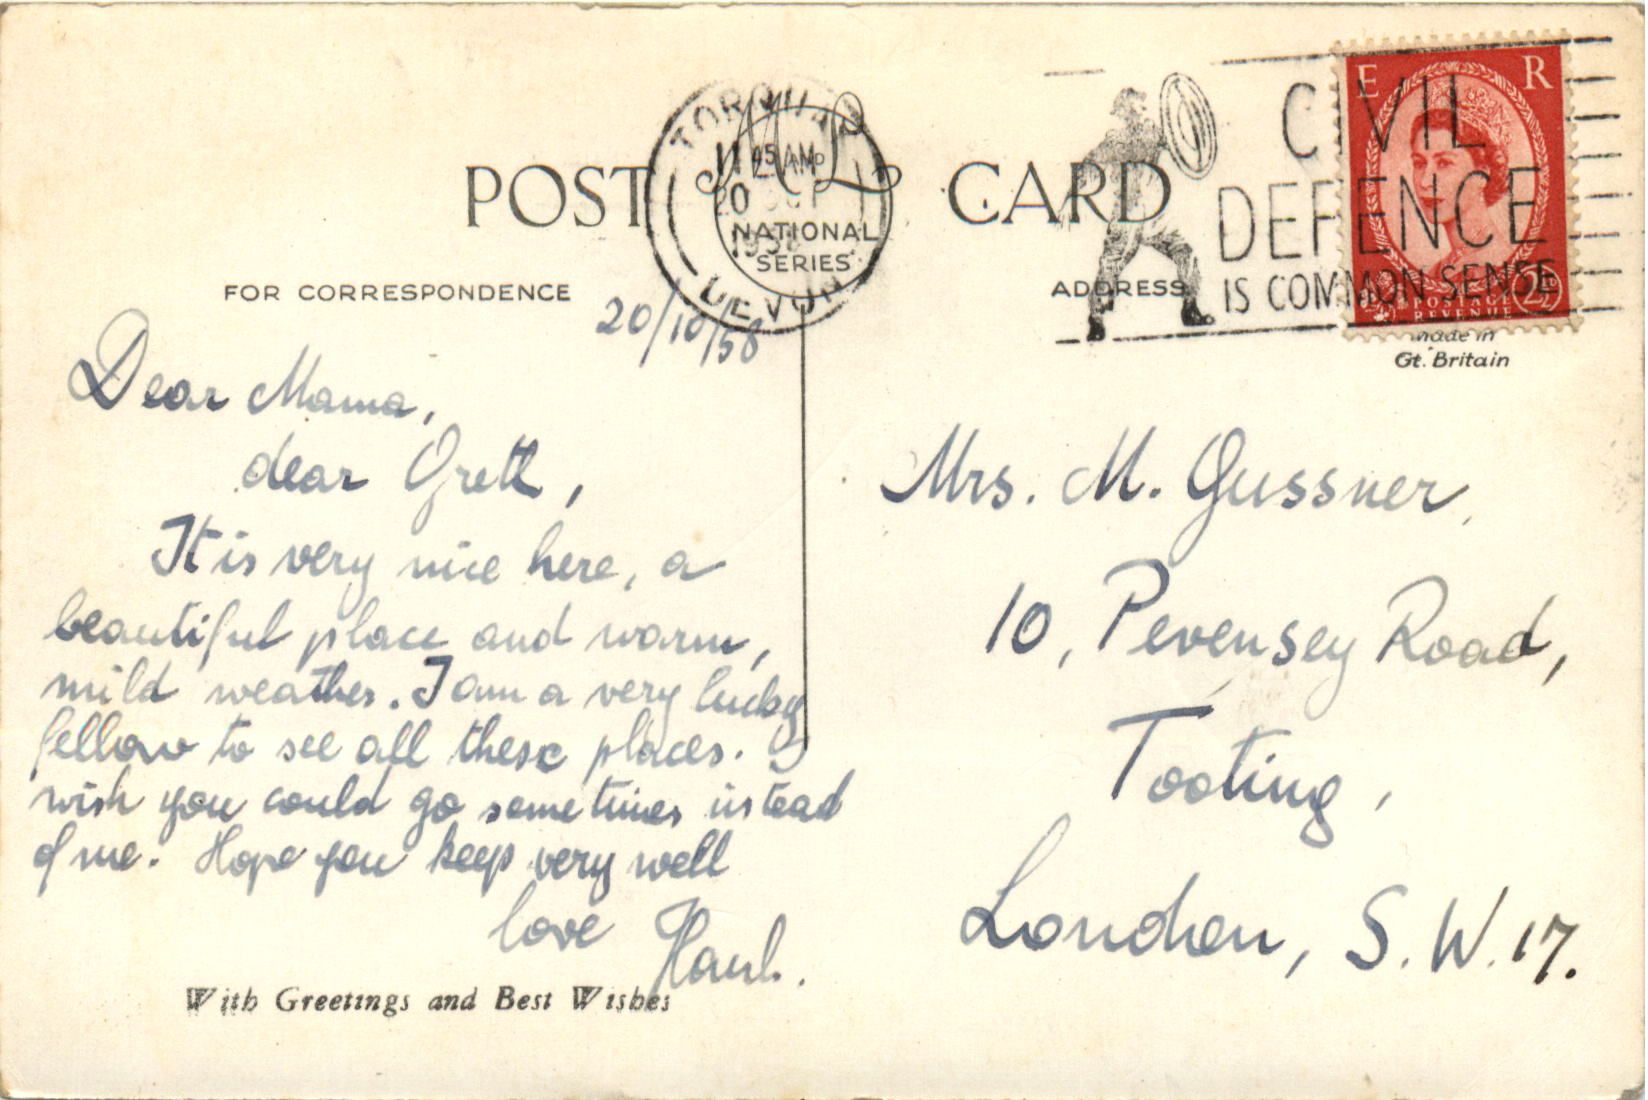 POST CARD
TORQUAY
11 45 AM
20 OCT
1958
DEVON
M and L
NATIONAL
SERIES
CIVIL
DEFENCE
IS COMMON SENSE
E R
POSTAGE
REVENUE
2½
FOR CORRESPONDENCE
ADDRESS
Made in
Gt. Britain
20/10/58
Dear Mama,
dear Gretl,
It is very nice here, a
beautiful place and warm,
mild weather. I am a very lucky
fellow to see all these places. I
wish you could go sometimes instead
of me. Hope you keep very well
love
With Greetings and Best Wishes
Mrs. M. Gussner,
10, Pevensey Road,
Tooting,
London, S.W.17.